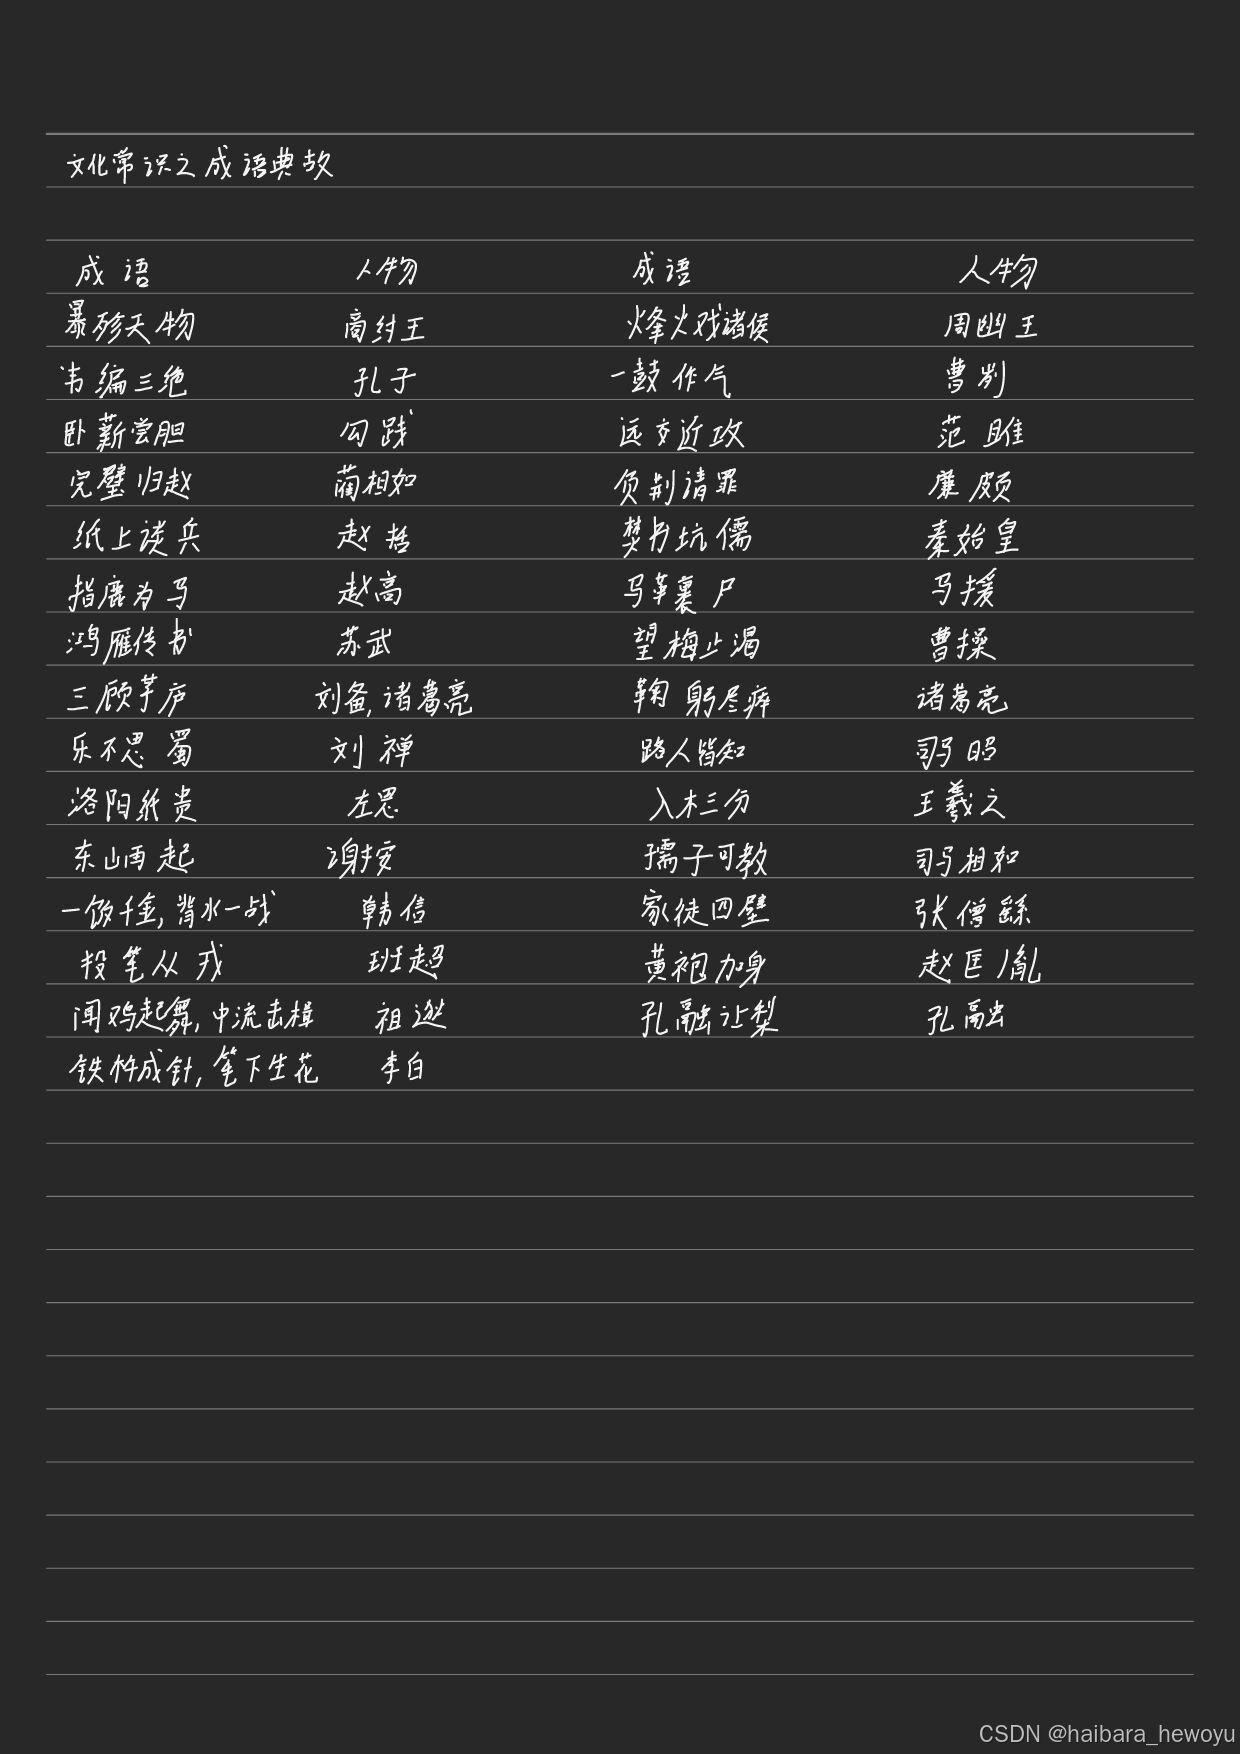 文化常识之成语典故
成语 人物 成语 人物
暴殄天物 商纣王 烽火戏诸侯 周幽王
韦编三绝 孔子 一鼓作气 曹刿
卧薪尝胆 勾践 远交近攻 范雎
完璧归赵 蔺相如 负荆请罪 廉颇
纸上谈兵 赵括 焚书坑儒 秦始皇
指鹿为马 赵高 马革裹尸 马援
鸿雁传书 苏武 望梅止渴 曹操
三顾茅庐 刘备,诸葛亮 鞠躬尽瘁 诸葛亮
乐不思蜀 刘禅 路人皆知 司马昭
洛阳纸贵 左思 入木三分 王羲之
东山再起 谢安 孺子可教 司马相如
一饭千金,背水一战 韩信 家徒四壁 张僧繇
投笔从戎 班超 黄袍加身 赵匡胤
闻鸡起舞,中流击楫 祖逖 孔融让梨 孔融
铁杵成针,笔下生花 李白
CSDN @haibara_hewoyu